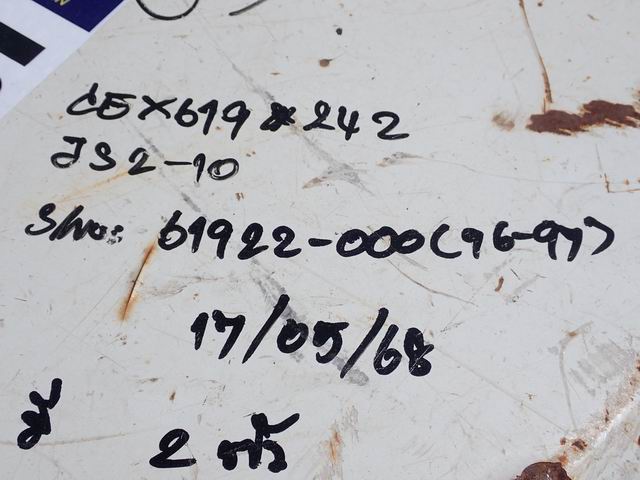 CEX619*242
JS2-10
S/no: 61922-000(96-97)
17/05/68
มี 2 ตัว